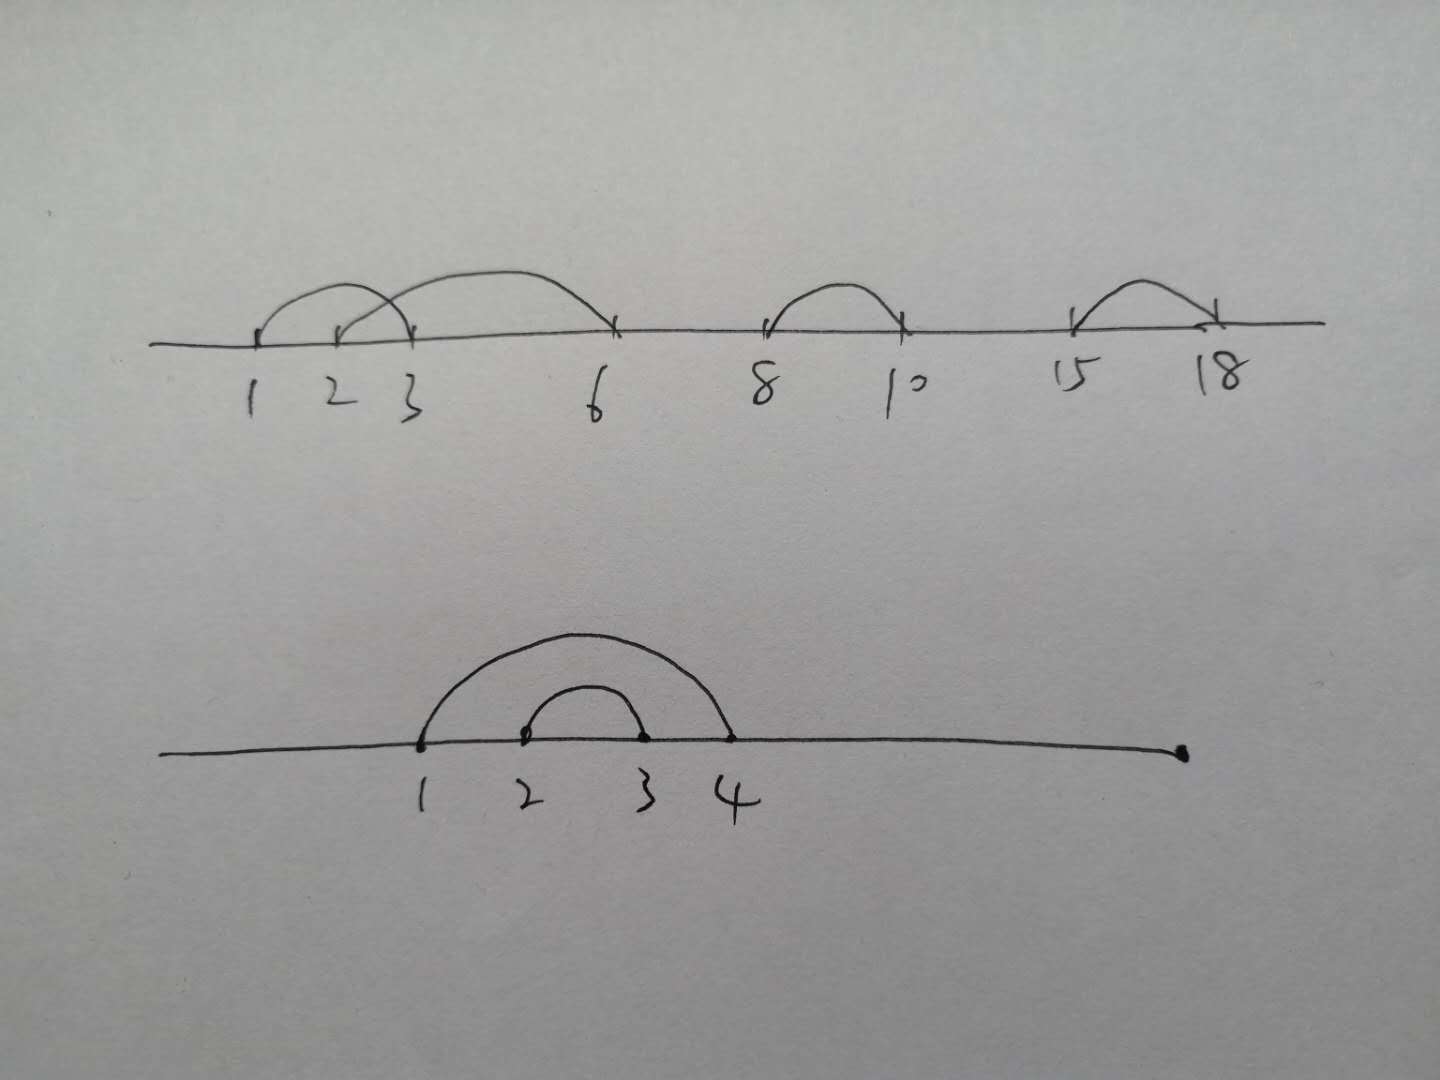 1 2 3 6 8 10 15 18
1 2 3 4